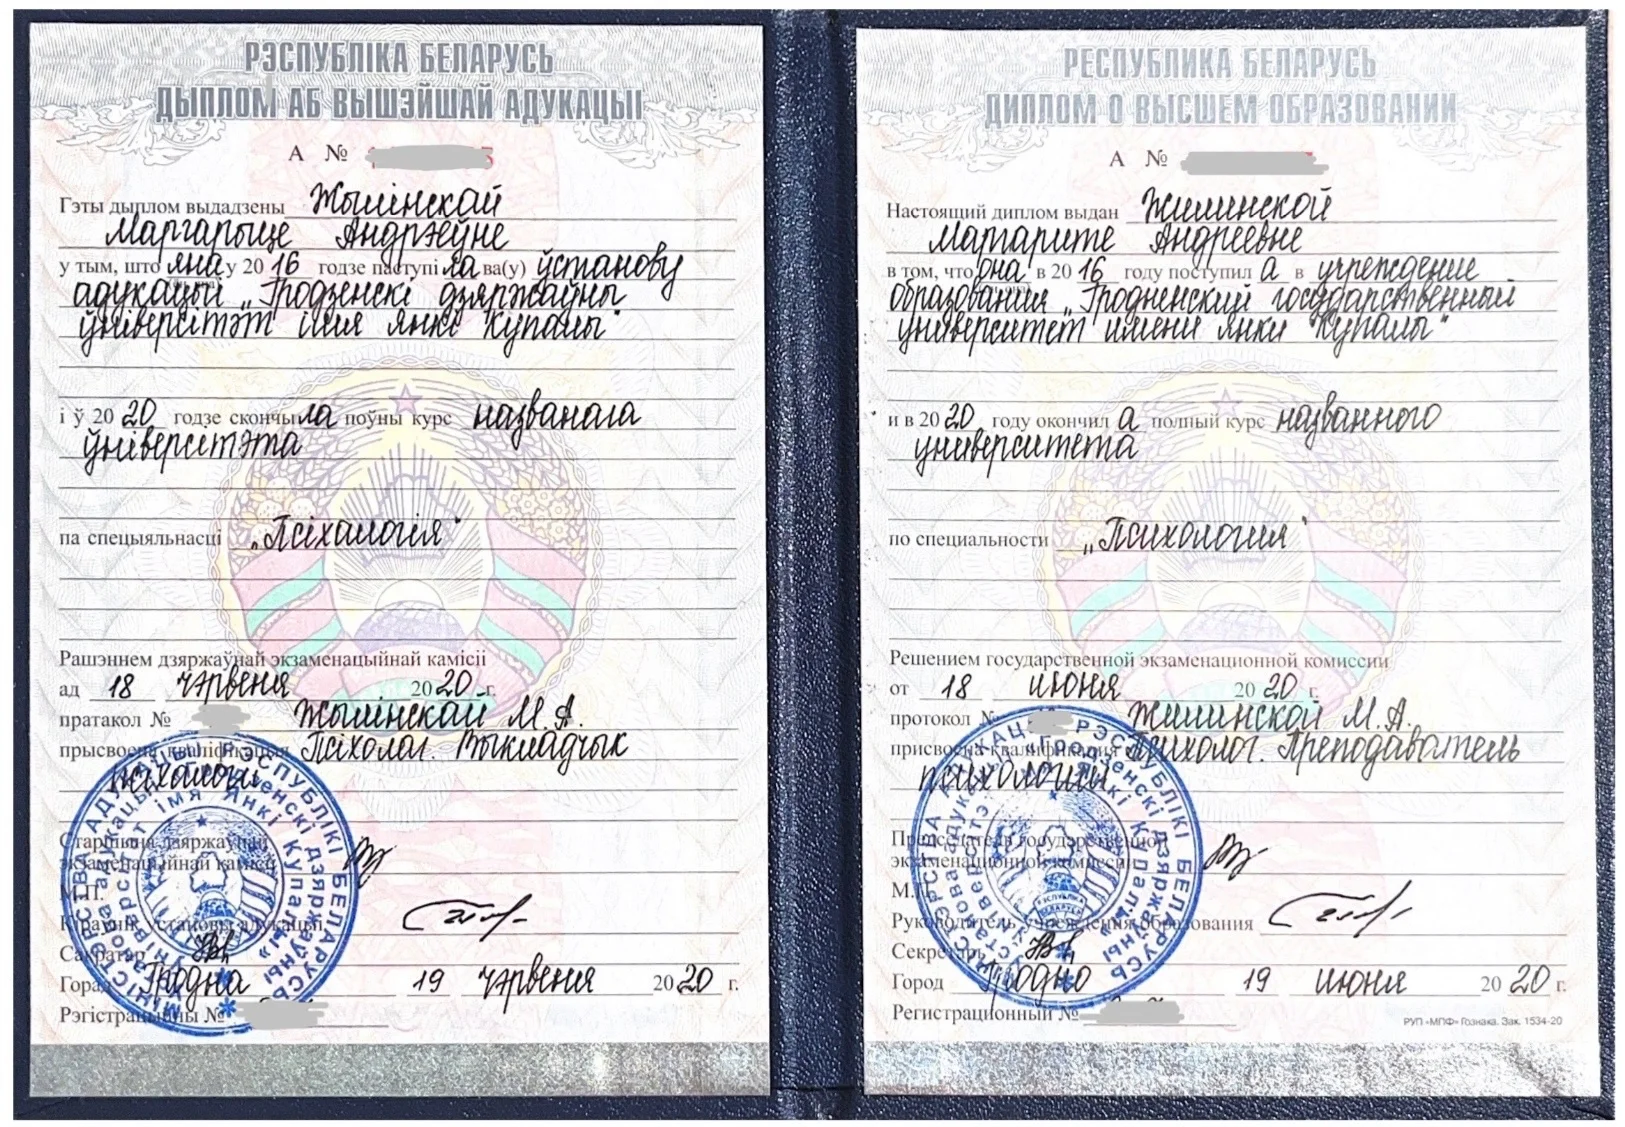 РЭСПУБЛІКА БЕЛАРУСЬ
ДЫПЛОМ АБ ВЫШЭЙШАЙ АДУКАЦЫІ
А №
Гэты дыплом выдадзены Жылінскай
Маргарыце Андрэеўне
у тым, што яна у 2016 годзе паступіла ва(у) ўстанову
адукацыі „Гродзенскі дзяржаўны
ўніверсітэт імя Янкі Купалы"
і ў 2020 годзе скончыла поўны курс названага
ўніверсітэта
па спецыяльнасці „Псіхалогія"
Рашэннем дзяржаўнай экзаменацыйнай камісіі
ад 18 чэрвеня 2020 г.
пратакол № Жылінскай М.А.
прысвоена кваліфікацыя Псіхолаг. Выкладчык
псіхалогіі
Старшыня дзяржаўнай
экзаменацыйнай камісіі
М.П.
Кіраўнік установы адукацыі
Сакратар
Горад Гродна 19 чэрвеня 2020 г.
Рэгістрацыйны №
РЕСПУБЛИКА БЕЛАРУСЬ
ДИПЛОМ О ВЫСШЕМ ОБРАЗОВАНИИ
А №
Настоящий диплом выдан Жилинской
Маргарите Андреевне
в том, что она в 2016 году поступила в учреждение
образования „Гродненский государственный
университет имени Янки Купалы"
и в 2020 году окончила полный курс названного
университета
по специальности „Психология"
Решением государственной экзаменационной комиссии
от 18 июня 2020 г.
протокол № Жилинской М.А.
присвоена квалификация Психолог. Преподаватель
психологии
Председатель государственной
экзаменационной комиссии
М.П.
Руководитель учреждения образования
Секретарь
Город Гродно 19 июня 2020 г.
Регистрационный №
РУП «МПФ» Гознака. Зак. 1534-20